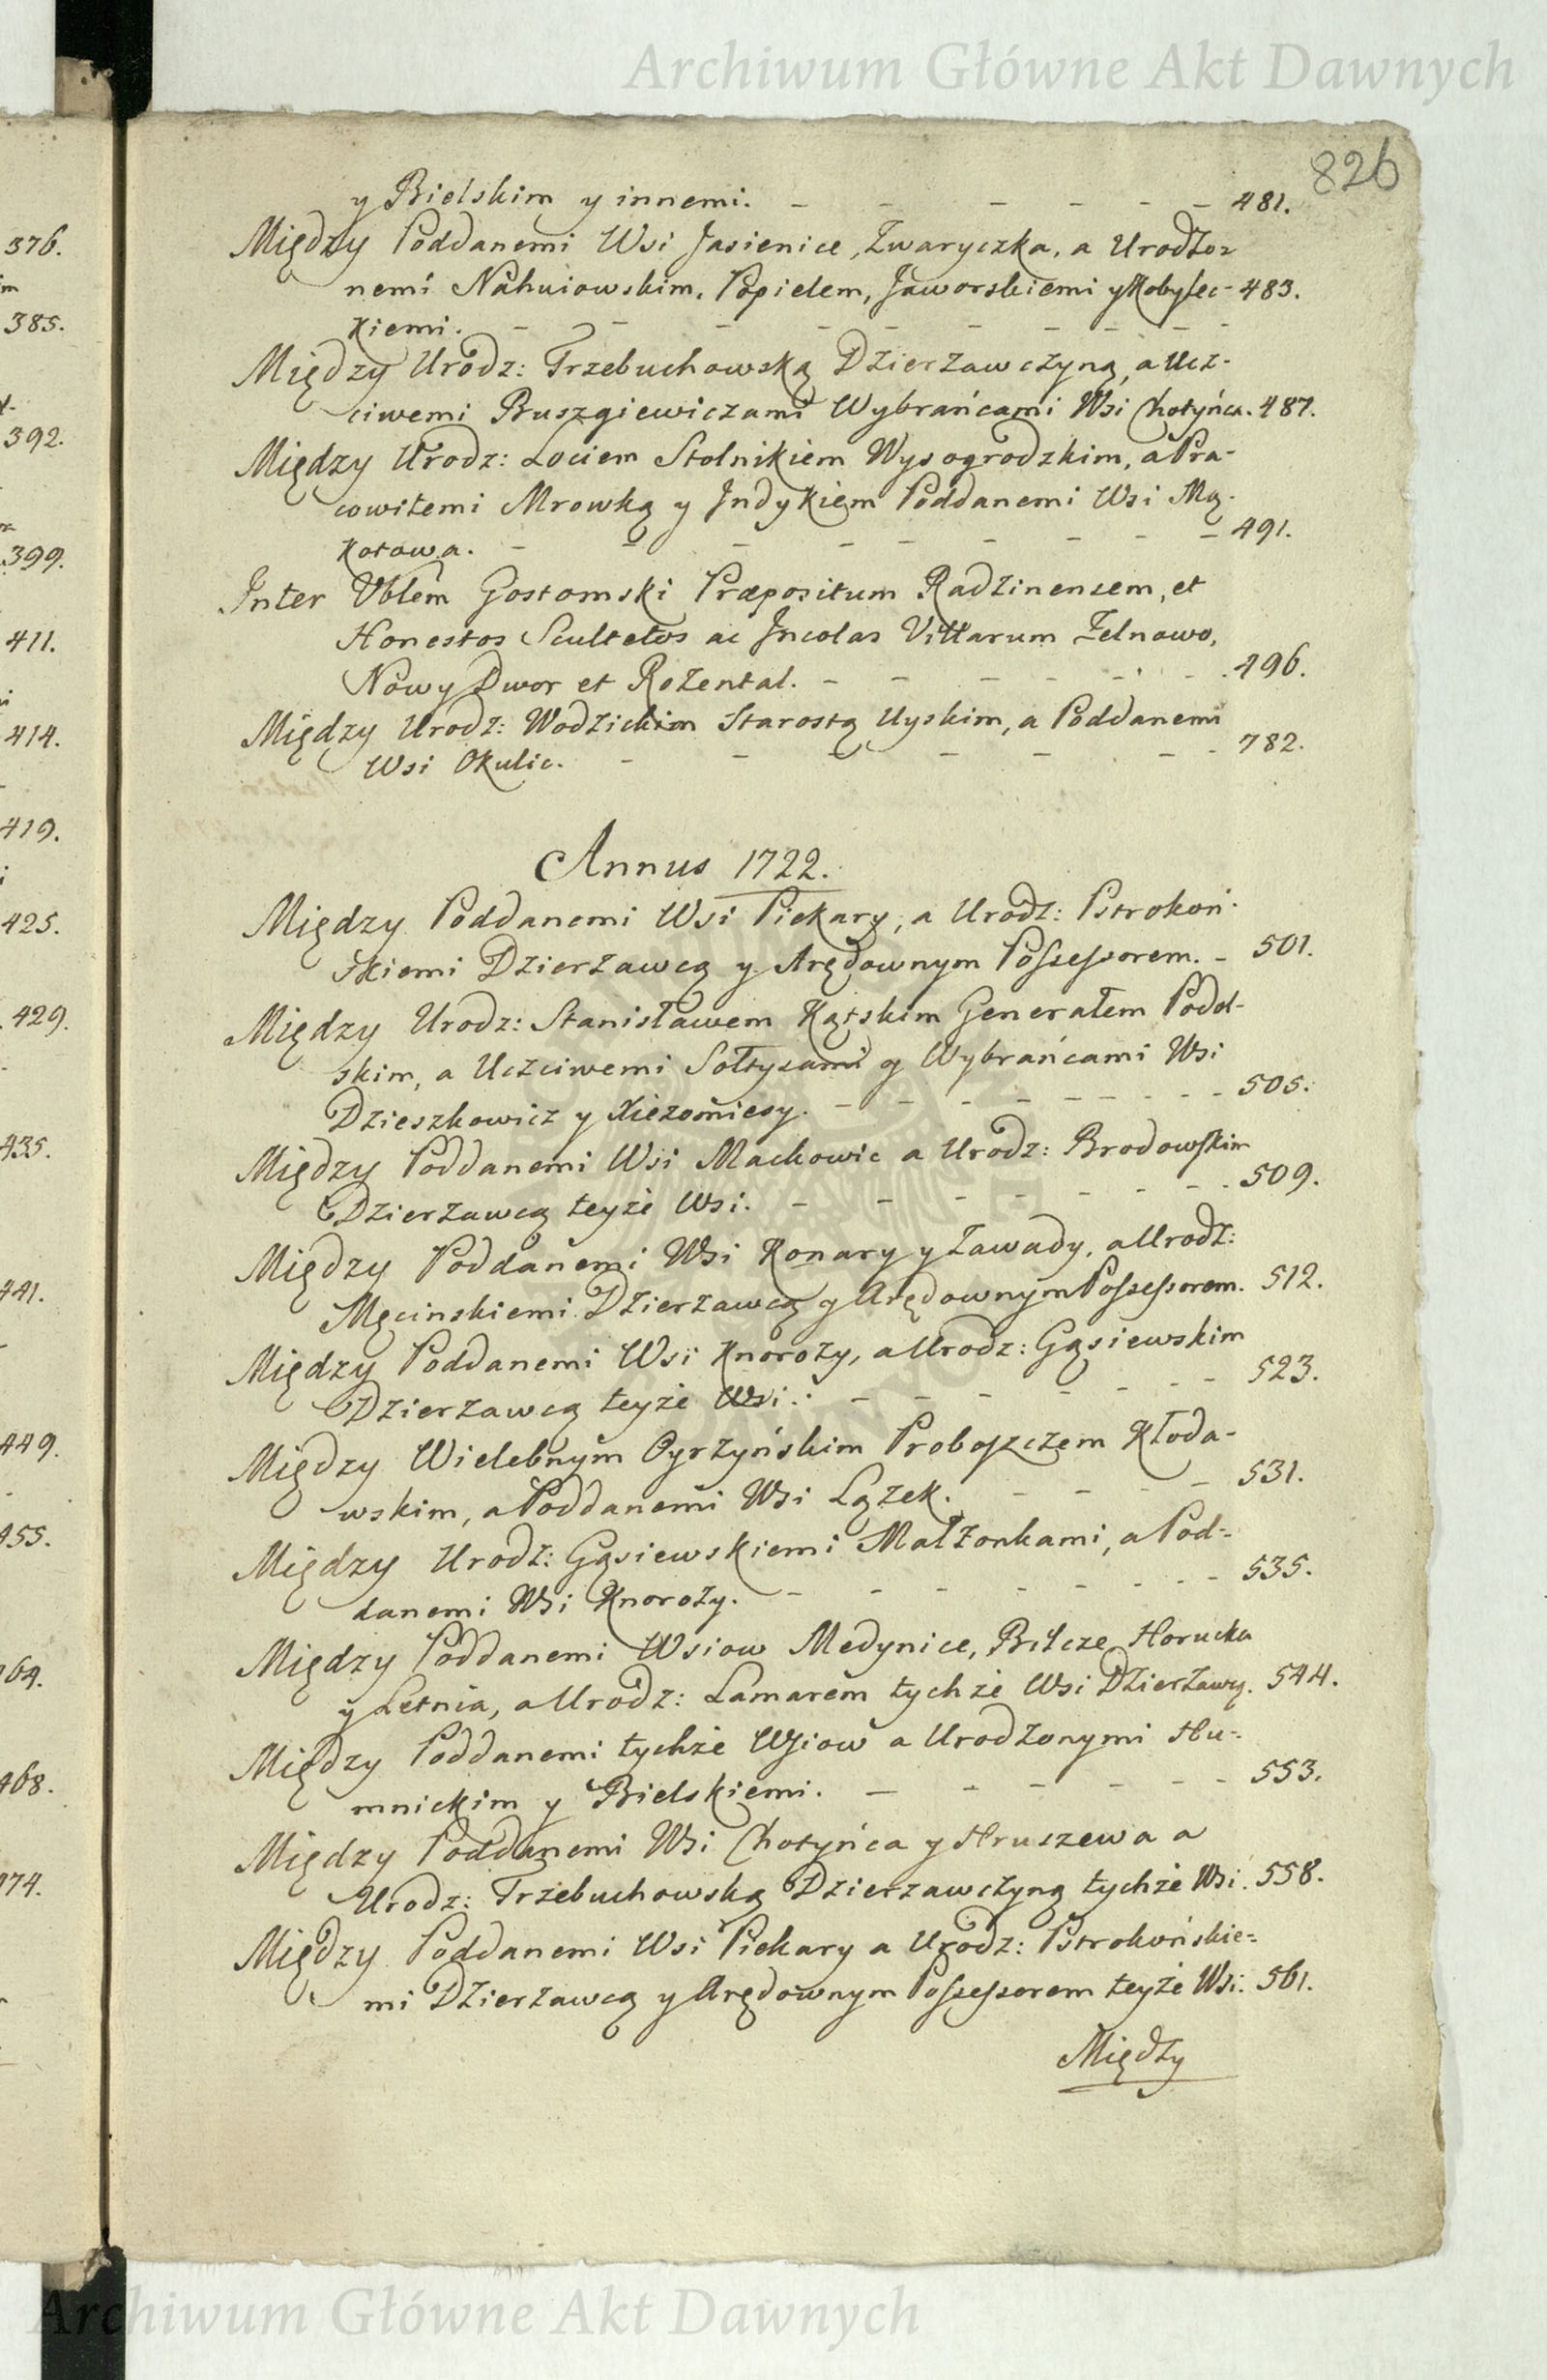 Archiwum Główne Akt Dawnych
826
y Bielskim y innemi. - - - - - - 481.
Między Poddanemi Wsi Jasienice, Zwaryczka, a Urodzo=
nemi Nahuiowskim, Popielem, Jaworskiemi y Kobylec- 483.
kiemi. - - - - - - - - - -
Między Urodz: Trzebuchowską Dzierzawczyną, a Ucz-
ciwemi Buszgiewiczami Wybrańcami Wsi Chotyńca. 487.
Między Urodz: Lociem Stolnikiem Wysogrodzkim, a Pra-
cowitemi Mrowką y Jndykiem Poddanemi Wsi Mą-
kotowa. - - - - - - - - 491.
Inter Vblem Gostomski Præpositum Radzinensem, et
Honestos Scultetos ac Jncolas Villarum Zelnowo,
Nowy Dwor et Rozental. - - - - - - 496.
Między Urodz: Wodzickim Starostą Uyskim, a Poddanemi
Wsi Okulic. - - - - - - 782.
Annus 1722.
Między Poddanemi Wsi Piekary, a Urodz: Pstrokoń-
skiemi Dzierzawcą y Arędownym Possessorem. - 501.
Między Urodz: Stanisławem Kątskim Generałem Podol-
skim, a Uczciwemi Sołtysami y Wybrańcami Wsi
Dzieszkowicz y Xiezomiesy. - - - - - - - - 505.
Między Poddanemi Wsi Mackowic a Urodz: Brodowskim
Dzierzawcą teyże Wsi. - - - - - - - - 509.
Między Poddanemi Wsi Konary y Zawady, a Urodz:
Męcinskiemi Dzierzawcą y Arędownym Possessorem. 512.
Między Poddanemi Wsi Knorozy, a Urodz: Gąsiewskim
Dzierzawcą teyże Wsi. - - - - - - - 523.
Między Wielebnym Oyrzyńskim Proboszczem Kłoda-
wskim, a Poddanemi Wsi Lązek. - - - - 531.
Między Urodz: Gąsiewskiemi Małzonkami, a Pod-
danemi Wsi Knorozy. - - - - - - - - 535.
Między Poddanemi Wsiow Medynice, Bilcze Horucka
y Letnia, a Urodz: Lamarem tychże Wsi Dzierzawcą. 544.
Między Poddanemi tychże Wsiow a Urodzonymi Hu-
mnickim y Bielskiemi. - - - - - - 553.
Między Poddanemi Wsi Chotyńca y Hruszewa a
Urodz: Trzebuchowską Dzierzawczyną tychże Wsi. 558.
Między Poddanemi Wsi Piekary a Urodz: Pstrokońskie-
mi Dzierzawcą y Arędownym Possessorem teyże Wsi. 561.
Między
376.
385.
392.
399.
411.
414.
419.
425.
429.
435.
441.
449.
455.
464.
468.
474.
Archiwum Główne Akt Dawnych